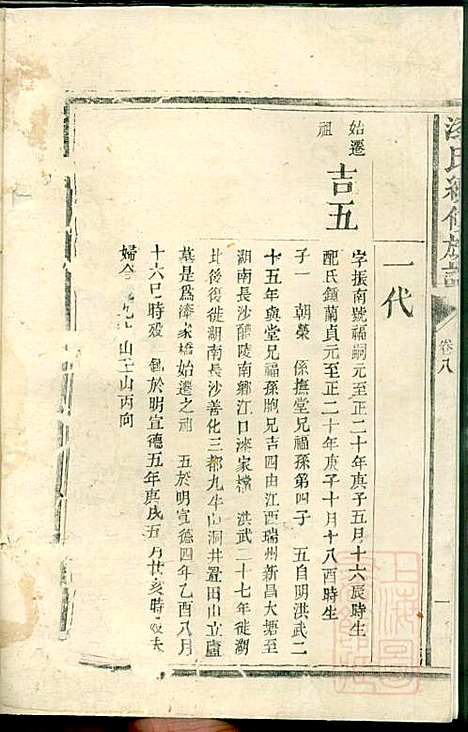 漆氏續修族譜
卷八
一
一代
始遷
祖
吉五
字振南號福嗣元至正二十年庚子五月十六辰時生
配氏鍾蘭貞元至正二十年庚子十月十八酉時生
子一 朝榮 係撫堂兄福孫第四子 五自明洪武二
十五年與堂兄福孫胞兄吉四由江西瑞州新昌大塘至
湖南長沙醴陵南鄉江口漆家 洪武二十七年徙湖
此後復徙湖南長沙善化三都九牛山洞井置田山立廬
墓是為漆家橋始遷之 五於明宣德四年乙酉八月
十六巳時歿 於明宣德五年庚戌五月廿亥時歿夫
婦合 九 山壬山丙向